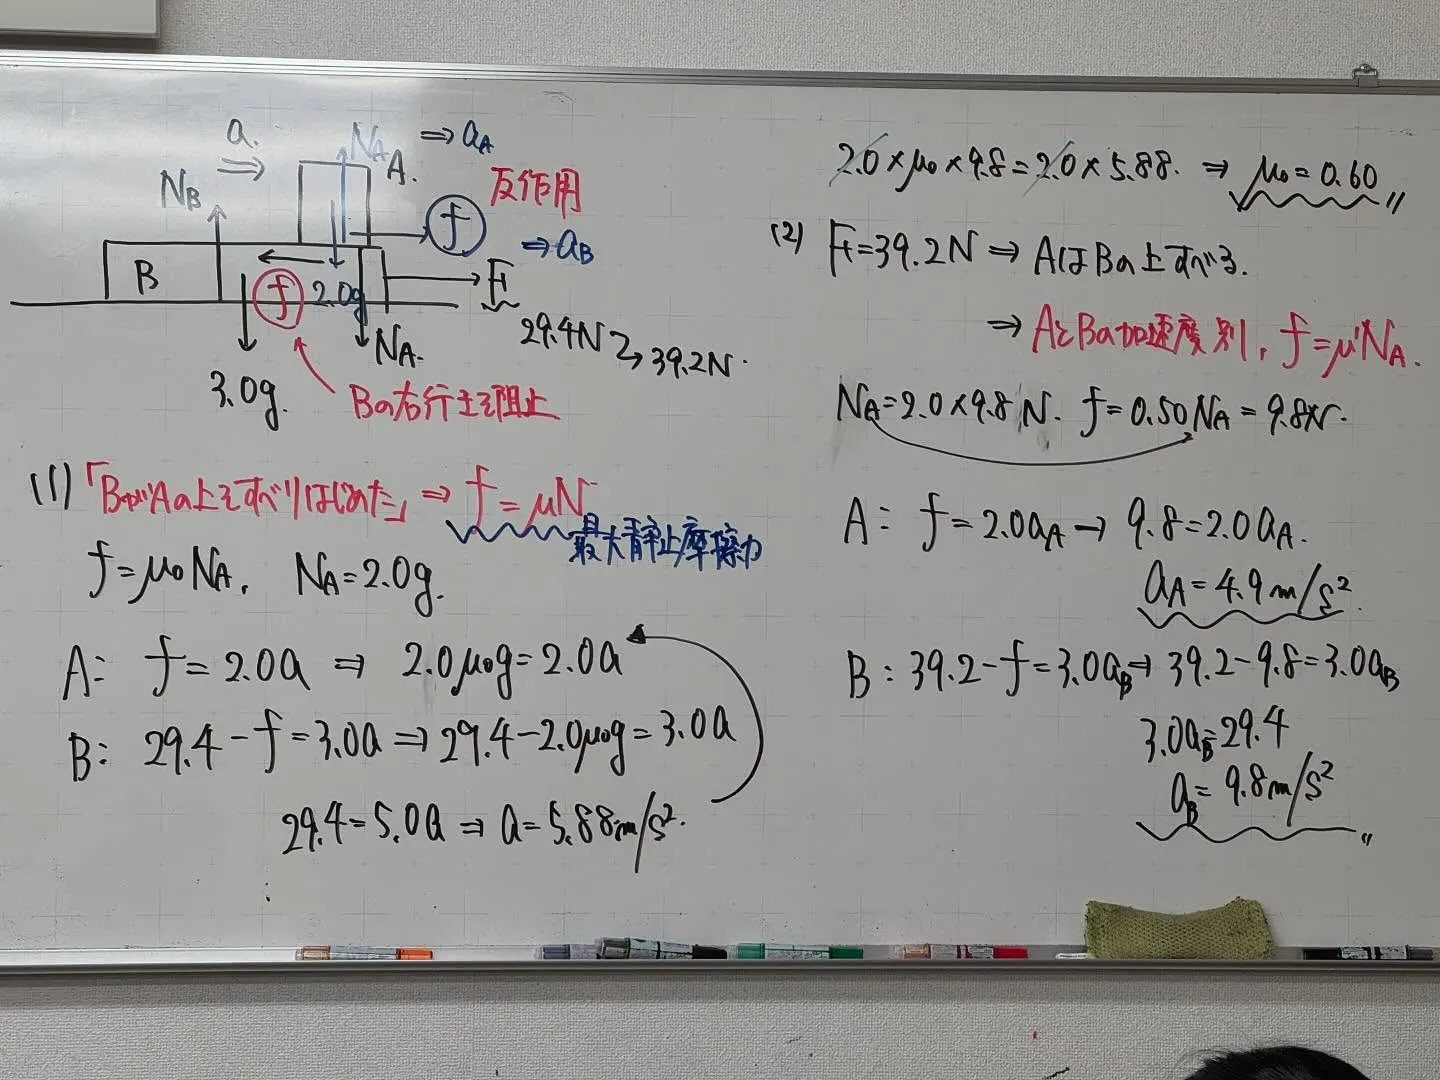 a.
⇒
NB
NA ⇒ aA
A.
反作用
f
⇒ aB
B
F
f 2.0g
29.4N
39.2N.
NA.
3.0g.
Bの右行きを阻止
(1)「BがAの上をすべりはじめた」⇒ f=μN
最大静止摩擦力
f=μ₀NA, NA=2.0g.
A: f=2.0a ⇒ 2.0μ₀g=2.0a
B: 29.4-f=3.0a ⇒ 29.4-2.0μ₀g=3.0a
29.4=5.0a ⇒ a=5.88m/s².
2.0×μ₀×9.8=2.0×5.88. ⇒ μ₀=0.60〃
(2) F=39.2N ⇒ AはBの上すべる.
⇒ AとBの加速度別, f=μ'NA.
NA=2.0×9.8N. f=0.50NA=9.8N.
A: f=2.0aA → 9.8=2.0aA.
aA=4.9m/s².
B: 39.2-f=3.0aB ⇒ 39.2-9.8=3.0aB
3.0aB=29.4
aB=9.8m/s²
〃